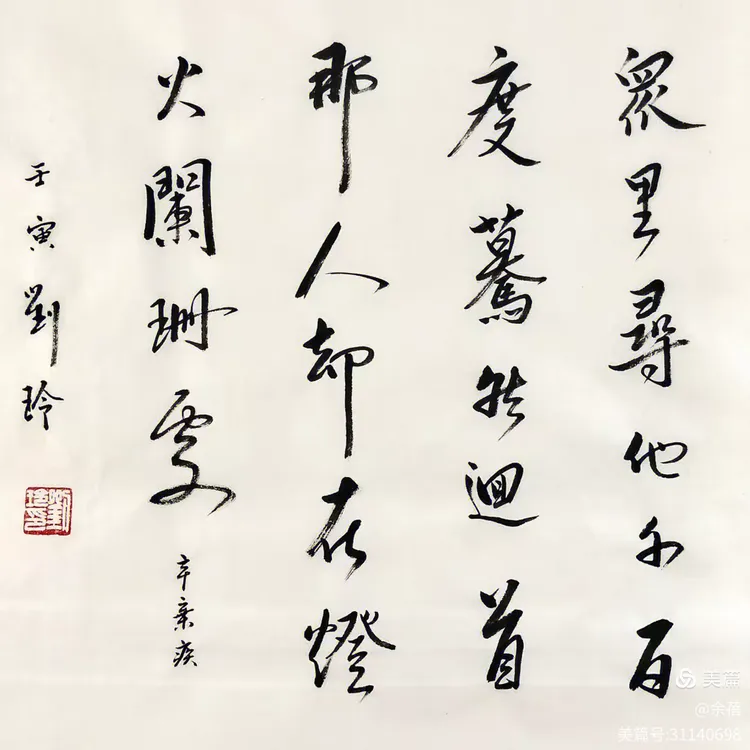 眾里尋他千百
度驀然迴首
那人却在燈
火闌珊處
辛棄疾
壬寅劉玲
劉玲印
美篇
@余蓓
美篇号:31140696